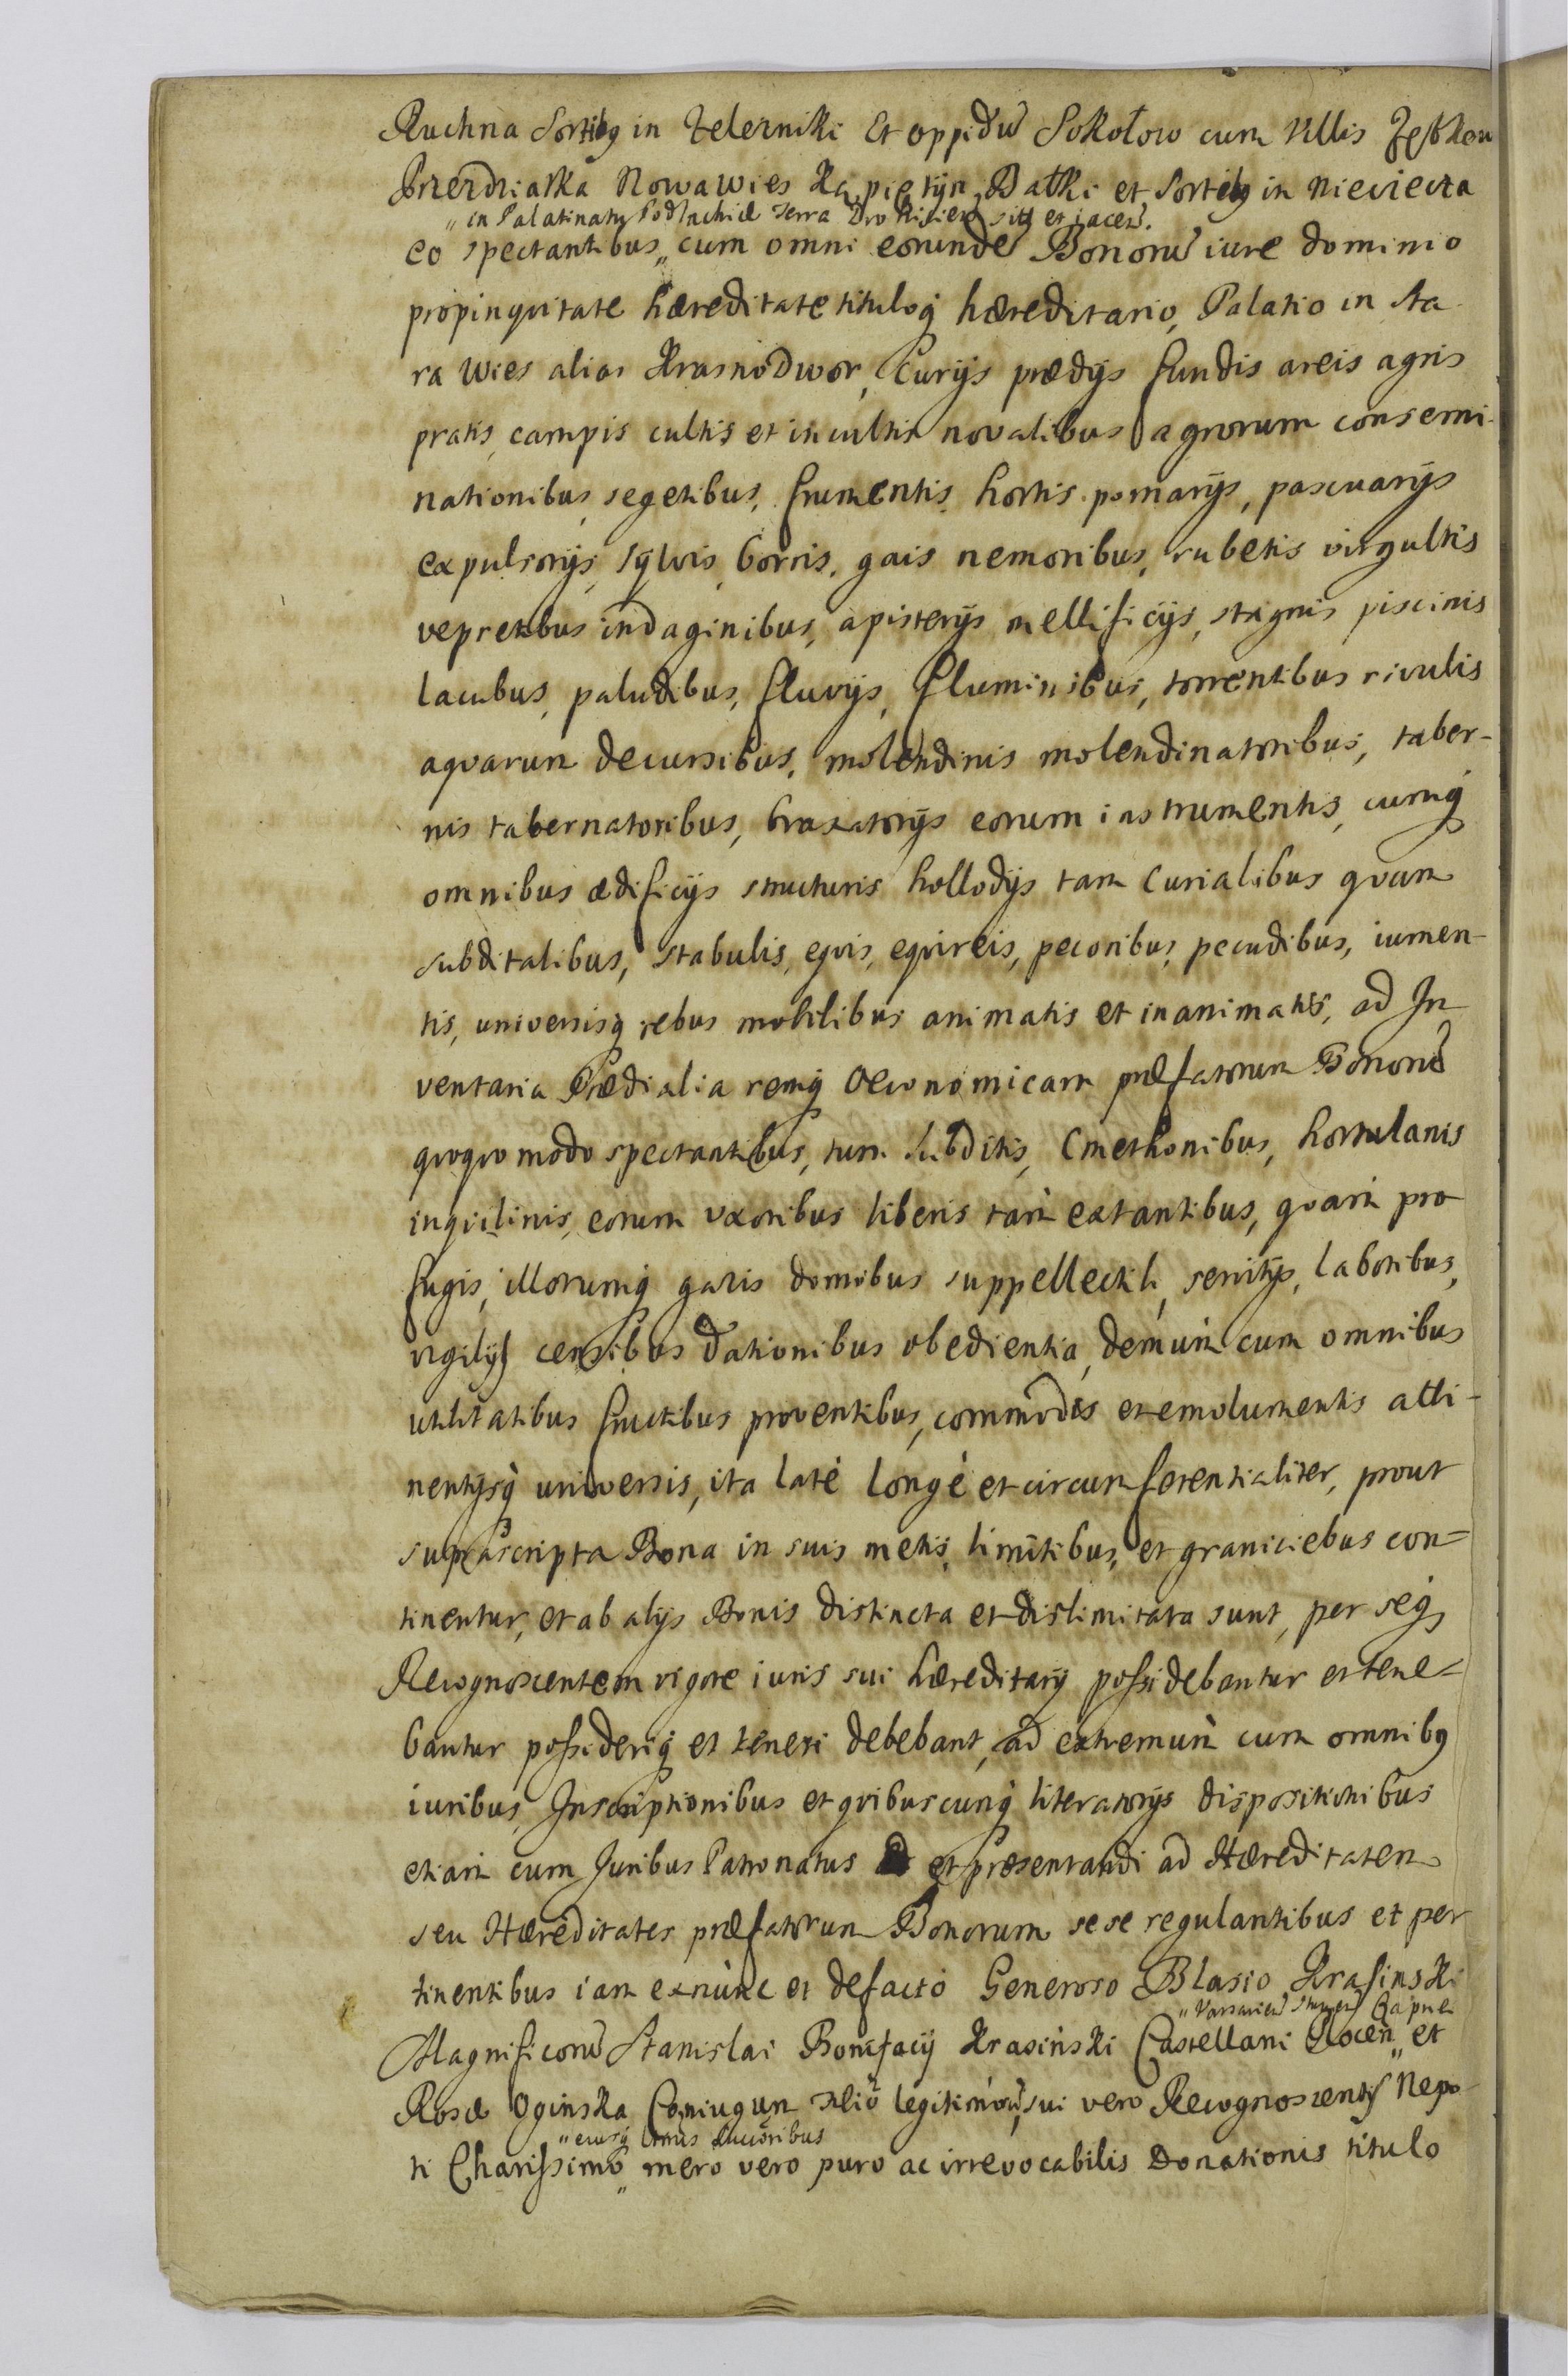 Ruchna Sortibꝯ in Zelerniki Et oppidũ Sokołow cum Villis Ząbkow
Przezdziatka Nowawies Kąpiętijn, Bałki et Sortibꝯ in Nieciecza
„ in Palatinatu Podlachiæ Terra Drohicien sitꝭ et jacen̄.
eo spectantibus „ cum omni eorundẽ Bonorũ iure dominio
propinquitate hæreditate tituloq̃ hæreditario, Palatio in Sta
ra Wies alias Krasnodwor, Curijs prædijs fundis areis agris
pratis, campis cultis et incultis novalibus agrorum consemi-
nationibus, segetibus, frumentis, hortis pomarijs, pascuarijs
expulsorijs, sylvis, borris, gais nemoribus, rubetis virgultis
vepretibus indaginibus, apisterijs mellificijs, stagnis, piscinis
lacubus, paludibus, fluvijs, fluminibus, torrentibus rivulis
aqvarum decursibus, molendinis molendinatoribus, taber-
nis tabernatoribus, braxatorijs eorum instrumentis, cumq̃
omnibus ædificijs structuris hollodijs tam Curialibus qvam
subditalibus, stabulis, eqvis, eqvireis, pecoribus, pecudibus, iumen-
tis, universisq̃ rebus mobilibus animatis et inanimatis, ad In
ventaria Prædialia remq̃ Oeconomicam præfatorum Bonorũ
qvoqvo modo spectantibus, tum Subditis, Cmethonibus, hortulanis
inqvilinis, eorum uxoribus liberis tam extantibus, qvam pro
fugis, illorumq̃ gazis domibus suppellectili, servitijs, laboribus,
vigilijs censibus dationibus obedientia, demum cum omnibus
utilitatibus fructibus proventibus, commodis et emolumentis atti-
nentijsq̃ universis, ita laté longé et circumferentialiter, prout
suprascripta Bona in suis metis, limitibus, et graniciebus con=
tinentur, et ab alijs Bonis distincta et dislimitata sunt, per seq̃,
Recognoscentem vigore iuris sui hæreditarij possidebantur et tene=
bantur possideriq̃ et teneri debebant, ad extremum cum omnibꝯ
iuribus, Inscriptionibus et qvibuscunq̃ literatorijs dispositionibus
etiam cum Juribus Patronatus et præsentandi ad Hæreditatem
seu Hæreditates præfatorum Bonorum sese regulantibus et per
tinentibus iam exnunc et defacto Generoso Blasio Krasinski
„ Varsavien̄
Magnificorũ Stanislai Bonifacij Krasinski Castellani Plocen̄ „ et
Rosæ Oginska Coniugum filio legitimorũ, sui vero Recognoscentis Nepo
„ eiusq̃ Successoribus
ti Charissimo „ mero vero puro ac irrevocabilis Donationis titulo